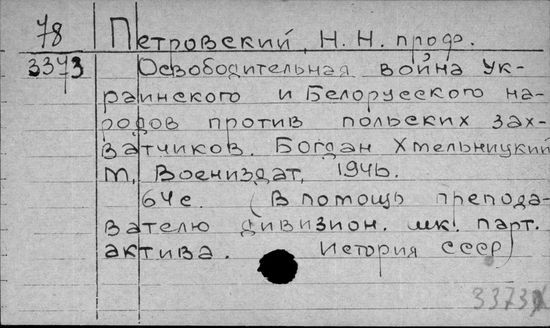 78 Петровский, Н. Н. проф.
3373 Освободительная война Ук-
раинского и Белорусского на-
родов против польских зах-
ватчиков. Богдан Хмельницкий
М, Воениздат, 1946.
64с. (В помощь препода-
вателю дивизион. шк. парт.
актива. История СССР)
3373